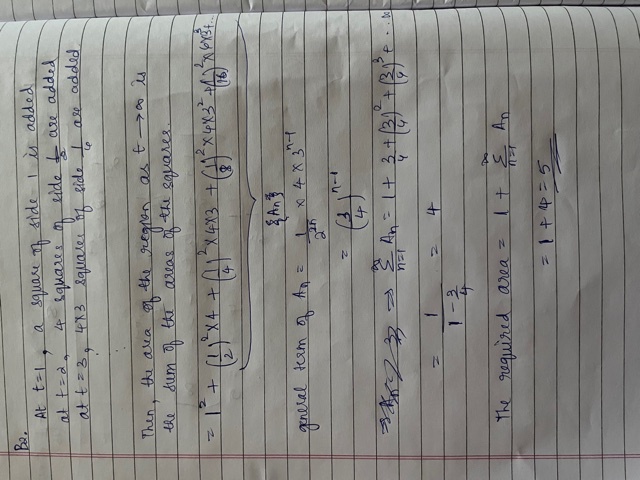 B2.
At t=1, a square of side 1 is added
at t=2, 4 squares of side 1/2 are added
at t=3, 4×3 squares of side 1/4 are added
⋮
Then, the area of the region as t→∞ is
the sum of the areas of the squares.
= 1² + (1/2)² × 4 + (1/4)² × 4×3 + (1/8)² × 4×3² + (1/16)² × 4×3³ + ...
{An}
general term of An = 1/2²ⁿ × 4 × 3ⁿ⁻¹
= (3/4)ⁿ⁻¹
⇒ ∞Σn=1 An = 1 + 3/4 + (3/4)² + (3/4)³ + ... ∞
= 1/(1 - 3/4) = 4
The required area = 1 + ∞Σn=1 An
= 1 + 4 = 5